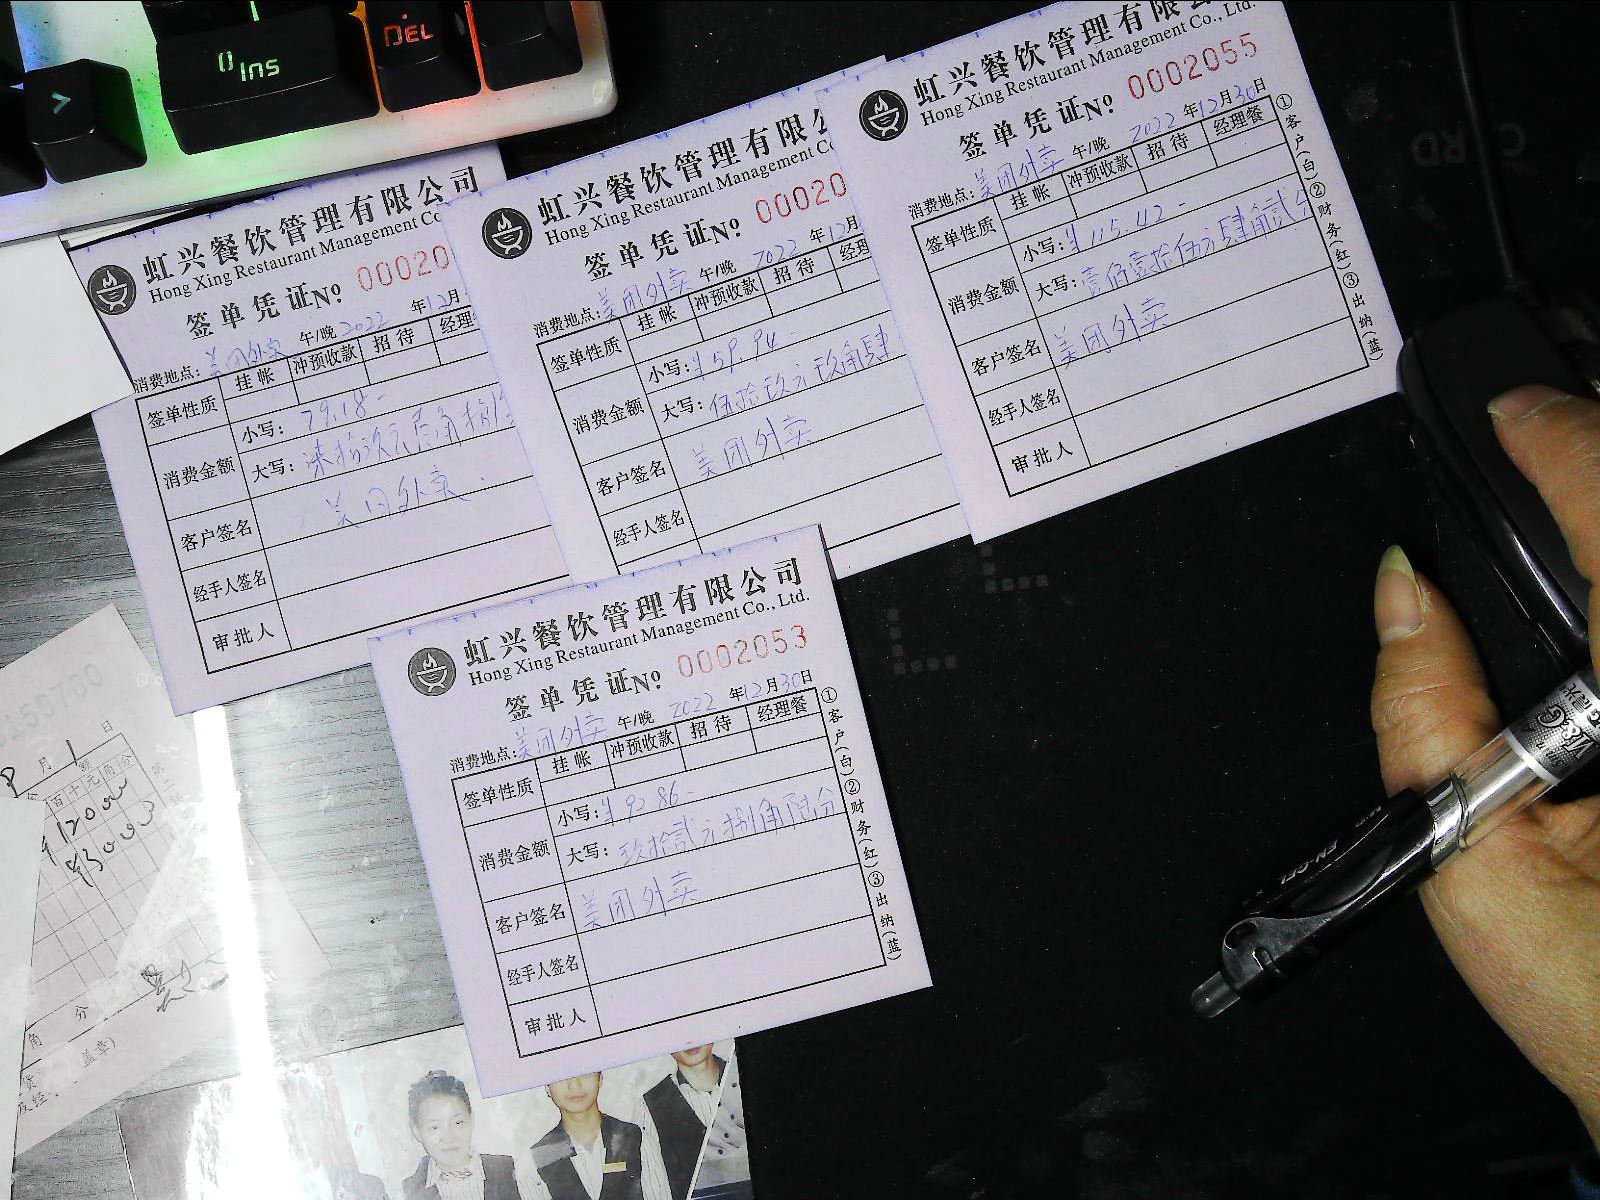 0 Ins
DEL
虹兴餐饮管理有限公司
Hong Xing Restaurant Management Co
签单凭证№ 00020
消费地点: 美团外卖 午/晚 2022 年12月
签单性质 挂帐 冲预收款 招待 经理
消费金额 小写: 79.18-
大写:
客户签名 美团外卖
经手人签名
审批人
虹兴餐饮管理有限公
Hong Xing Restaurant Management Co
签单凭证№ 00020
消费地点: 美团外卖 午/晚 2022 年12月
签单性质 挂帐 冲预收款 招待 经理
消费金额 小写: ¥59.94-
大写: 伍拾玖元玖角肆
客户签名 美团外卖
经手人签名
虹兴餐饮管理有限公
Hong Xing Restaurant Management Co., Ltd.
签单凭证№ 0002055
消费地点: 美团外卖 午/晚 2022 年12月30日
签单性质 挂帐 冲预收款 招待 经理餐
消费金额 小写: ¥115.42-
大写: 壹佰壹拾伍元肆角贰分
客户签名 美团外卖
经手人签名
审批人
①客户(白)②财务(红)③出纳(蓝)
虹兴餐饮管理有限公司
Hong Xing Restaurant Management Co., Ltd.
签单凭证№ 0002053
消费地点: 美团外卖 午/晚 2022 年12月30日
签单性质 挂帐 冲预收款 招待 经理餐
消费金额 小写: ¥92.86-
大写: 玖拾贰元捌角陆分
客户签名 美团外卖
经手人签名
审批人
①客户(白)②财务(红)③出纳(蓝)
月 日
百十元角分
角 分
盖章)
M&G